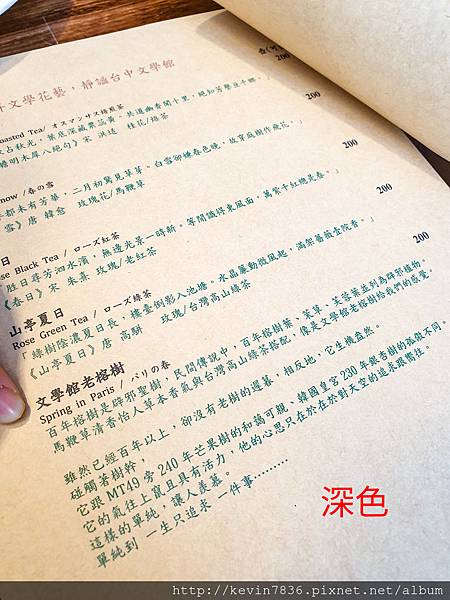 文學花藝，靜謐台中文學館
oasted Tea/ オスマンサス焙煎茶
200
占秋光，葉底深藏粟蕊黃。共道幽香聞十里，絕知芳譽亙千鄉。」
瞻明木犀八絕句》宋 洪适 桂花/焙茶
now /春の雪
200
都未有芳華，二月初驚見草芽。白雪卻嫌春色晚，故穿庭樹作飛花。」
雪》唐 韓愈 玫瑰花/馬鞭草
日
se Black Tea / ローズ紅茶
200
勝日尋芳泗水濱，無邊光景一時新。等閒識得東風面，萬紫千紅總是春。」
《春日》宋 朱熹 玫瑰/老紅茶
山亭夏日
Rose Green Tea / ローズ綠茶
200
「綠樹陰濃夏日長，樓臺倒影入池塘。水晶簾動微風起，滿架薔薇壹院香。」
《山亭夏日》唐 高駢 玫瑰/台灣高山綠茶
文學館老榕樹
Spring in Paris / パリの春
百年榕樹是辟邪聖樹，民間傳說中，百年榕樹葉、茉草、芙蓉葉並列為辟邪植物。
馬鞭草清香怡人草本香氣與台灣高山綠茶搭配，像是文學館老榕樹給我們的感覺。
雖然已經百年以上，卻沒有老樹的遲暮，相反地，它生機盎然。
碰觸著樹幹，
它跟 MT49 旁 240 年芒果樹的和藹可親、韓國皇宮 230 年銀杏樹的孤獨不同。
它的氣往上竄且具有活力，他的心思只在於在於對天空的追求跟嚮往。
這樣的單純，讓人羨慕。
單純到 一生只追求 一件事.........
深色
http://kevin7836.pixnet.net/album